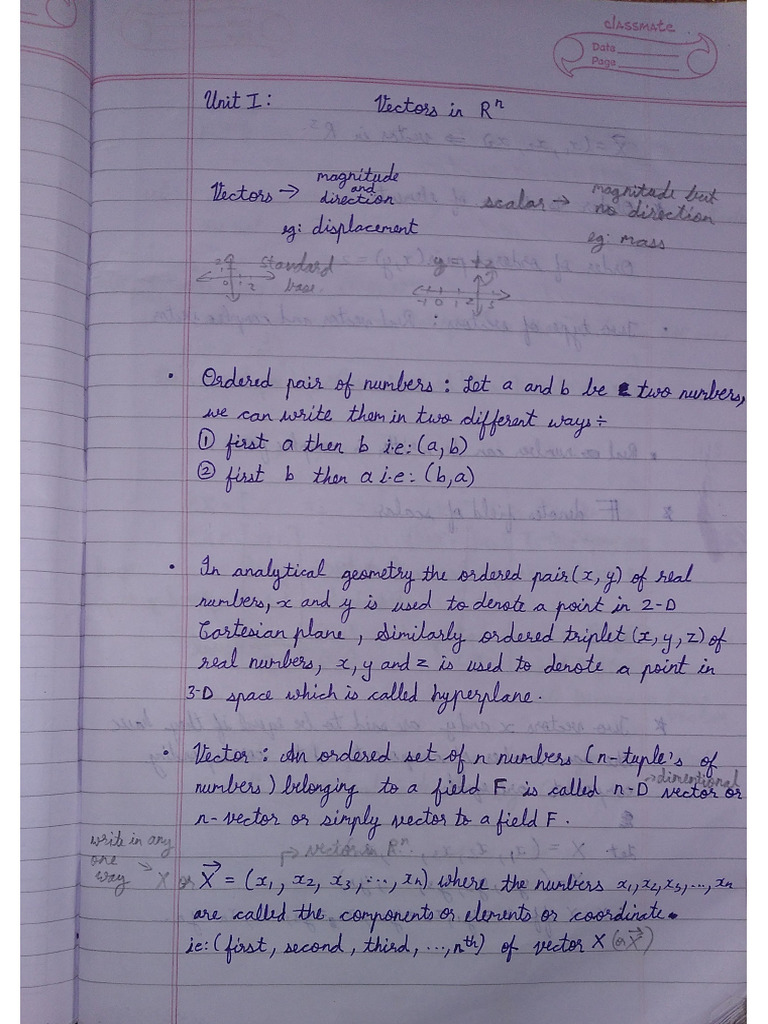 classmate
Date
Page
Unit I: Vectors in Rⁿ
Vectors → magnitude and direction scalar → magnitude but no direction
eg: displacement eg: mass
standard base
• Ordered pair of numbers: Let a and b be two numbers,
we can write them in two different ways ÷
① first a then b i.e: (a, b)
② first b then a i.e: (b, a)
• In analytical geometry the ordered pair (x, y) of real
numbers, x and y is used to denote a point in 2-D
Cartesian plane, Similarly ordered triplet (x, y, z) of
real numbers, x, y and z is used to denote a point in
3-D space which is called hyperplane.
• Vector: An ordered set of n numbers (n-tuple's of
numbers) belonging to a field F is called n-D vector or
→ dimentional
n-vector or simply vector to a field F.
write in any one way → X or X⃗ = (x₁, x₂, x₃, ..., xₙ) where the numbers x₁, x₂, x₃, ..., xₙ
are called the components or elements or coordinate.
ie: (first, second, third, ..., nᵗʰ) of vector X (or X⃗)